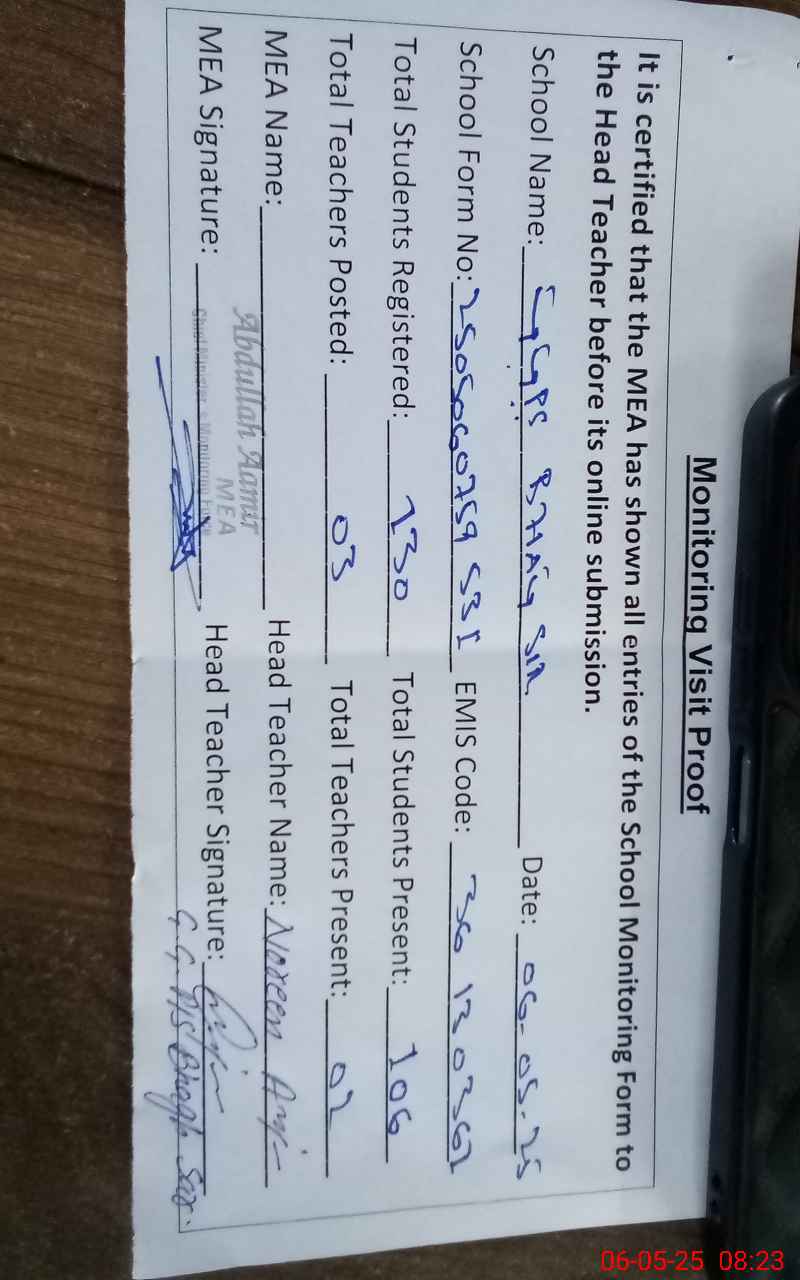 Monitoring Visit Proof
It is certified that the MEA has shown all entries of the School Monitoring Form to
the Head Teacher before its online submission.
School Name: GGPS BHAG SIR Date: 06-05-25
School Form No: EMIS Code:
Total Students Registered: 130 Total Students Present: 106
Total Teachers Posted: 03 Total Teachers Present: 02
MEA Name: Abdullah Aamir Head Teacher Name: Noreen
MEA
MEA Signature: Head Teacher Signature:
G.G.P/S Bhagh Sar.
06-05-25 08:23